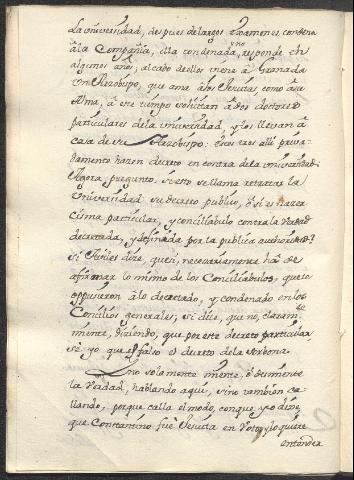 la universidad, despues de largos examenes condena
â la Compañia, ella condenada, y no responde en
algunos años, al cabo de ellos viene â Granada
un Arzobispo, que ama â los Jesuitas como â su
Alma, â este tiempo solicitan â dos doctores
particulares de la universidad, y los llevan â
casa de su Arzobispo: Estos tres alli priva-
damente hazen decreto en contra de la universidad.
Agora pregunto si esto se llama retratar la
universidad su decreto publico, ô si es hazer
cisma particular, y conciliabulo contra la verdad
decretada, y definida por la publica authoridad?
si Juiles dize, que si, necesariamente hâ de
afirmar lo mismo de los Conciliabulos, que se
oppusieron â lo decretado, y condenado en los
Concilios generales; si dize, que no, claramte
miente, diziendo, que por este decreto particular
sè, yo que es falso el decreto de la Sorbona.
Y no solamente miente, ô desmiente
la verdad, hablando aqui, sino tambien ca-
llando, porque calla el modo, conque yo dixe
que Constantino fuè Jesuita en Voto, y lo quiere
entender